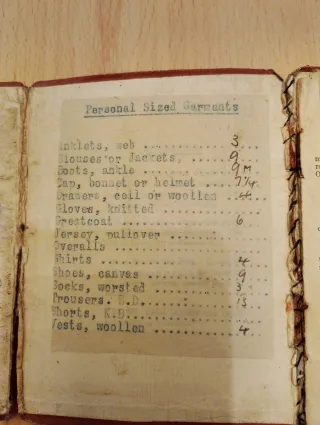 Personal Sized Garments
Anklets, web ............ 3
Blouses or Jackets, ..... 9
Boots, ankle ............ 9 M
Cap, bonnet or helmet ... 7 1/4
Drawers, cell or woollen 4
Gloves, knitted .........
Greatcoat ............... 6
Jersey, pullover ........
Overalls ................
Shirts .................. 4
Shoes, canvas ........... 9
Socks, worsted .......... 3
Trousers. B.D. .......... 13
Shorts, K.D. ............
Vests, woollen .......... 4